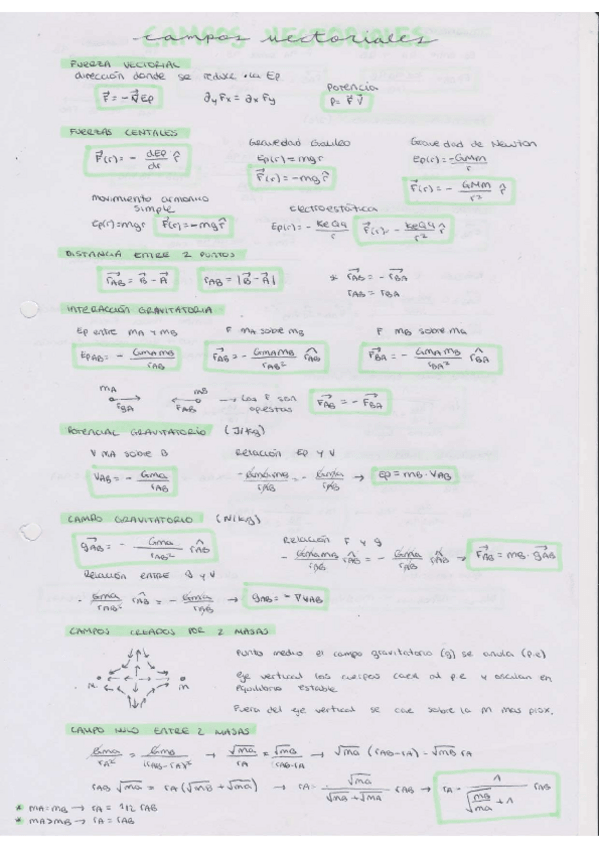 campos vectoriales
FUERZA VECTORIAL
dirección donde se reduce la Ep
Potencia
F⃗ = -∇⃗Ep   ∂y Fx = ∂x Fy   P = F⃗ V⃗
FUERZAS CENTALES   Gravedad Galileo   Gravedad de Newton
F⃗(r) = - dEp/dr r̂   Ep(r) = mgr   Ep(r) = -GMm/r
F⃗(r) = -mg r̂   F⃗(r) = - GMm/r² r̂
movimiento armonico simple   electroestática
Ep(r) = mgr   F⃗(r) = -mg r̂   Ep(r) = - KeQq/r   F⃗(r) = - KeQq/r² r̂
DISTANCIA ENTRE 2 PUNTOS
r⃗AB = B⃗ - A⃗   rAB = |B⃗ - A⃗|   * r⃗AB = - r⃗BA
rAB = rBA
INTERACCIÓN GRAVITATORIA
Ep entre MA y MB   F MA sobre MB   F MB sobre MA
EpAB = - GMAMB/rAB   F⃗AB = - GMAMB/rAB² r̂AB   F⃗BA = - GMAMB/rBA² r̂BA
MA   MB   → Las F son opuestas   F⃗AB = - F⃗BA
rBA   rAB
POTENCIAL GRAVITATORIO (J/kg)
V MA sobre B   Relación Ep y V
VAB = - GMA/rAB   - GMAMB/rAB = - GMA/rAB → Ep = MB · VAB
CAMPO GRAVITATORIO (N/kg)
Relación F y g
g⃗AB = - GMA/rAB² r̂AB   - GMAMB/rAB r̂AB = - GMA/rAB r̂AB → F⃗AB = MB · g⃗AB
Relación entre g y V
- GMA/rAB² r̂AB = - GMA/rAB → gAB = - ∇VAB
CAMPOS CREADOS POR 2 MASAS
Punto medio el campo gravitatorio (g) se anula (p.e)
M   m   Eje vertical los cuerpos caen al p.e y oscilan en
equilibrio estable
Fuera del eje vertical se cae sobre la M mas prox.
CAMPO NULO ENTRE 2 MASAS
GMA/rA² = GMB/(rAB-rA)² → √MA/rA = √MB/rAB-rA → √MA (rAB-rA) = √MB rA
rAB √MA = rA (√MB + √MA) → rA = √MA/√MA + √MA rAB → rA = 1/√(MB/MA) + 1 rAB
* MA = MB → rA = 1/2 rAB
* MA > MB → rA = rAB